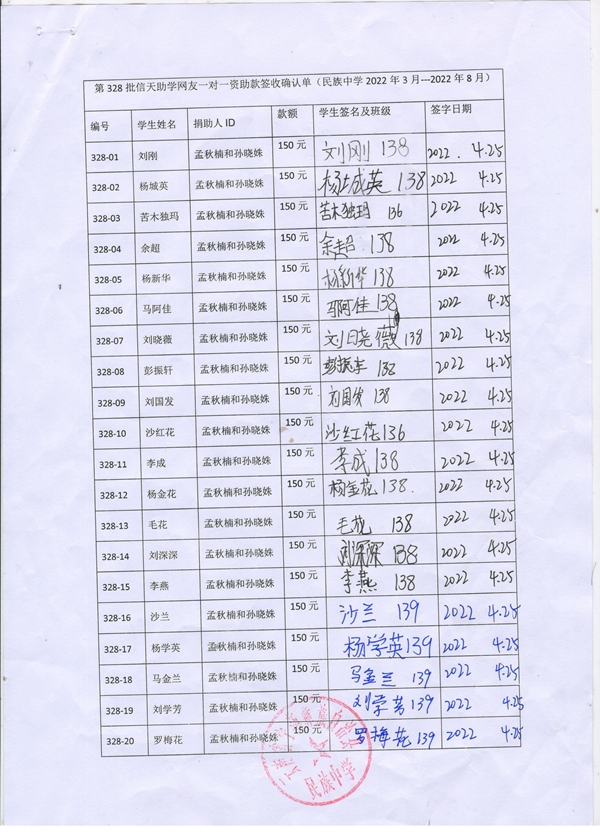 第 328 批信天助学网友一对一资助款签收确认单（民族中学 2022 年 3 月---2022 年 8 月）
编号 学生姓名 捐助人 ID 款额 学生签名及班级 签字日期
328-01 刘刚 孟秋楠和孙晓姝 150 元 刘刚 138 2022 . 4.25
328-02 杨城英 孟秋楠和孙晓姝 150 元 杨城英 138 2022 4.25
328-03 苦木独玛 孟秋楠和孙晓姝 150 元 苦木独玛 136 2022 4.25
328-04 余超 孟秋楠和孙晓姝 150 元 余超 138 2022 4.25
328-05 杨新华 孟秋楠和孙晓姝 150 元 杨新华 138 2022 4.25
328-06 马阿佳 孟秋楠和孙晓姝 150 元 马阿佳 138 2022 4.25
328-07 刘晓薇 孟秋楠和孙晓姝 150 元 刘晓薇 138 2022 4.25
328-08 彭振轩 孟秋楠和孙晓姝 150 元 彭振轩 138 2022 4.25
328-09 刘国发 孟秋楠和孙晓姝 150 元 刘国发 138 2022 4.25
328-10 沙红花 孟秋楠和孙晓姝 150 元 沙红花 136 2022 4.25
328-11 李成 孟秋楠和孙晓姝 150 元 李成 138 2022 4.25
328-12 杨金花 孟秋楠和孙晓姝 150 元 杨金花 138. 2022 4.25
328-13 毛花 孟秋楠和孙晓姝 150 元 毛花 138 2022 4.25
328-14 刘深深 孟秋楠和孙晓姝 150 元 刘深深 138 2022 4.25
328-15 李燕 孟秋楠和孙晓姝 150 元 李燕 138 2022 4.25
328-16 沙兰 孟秋楠和孙晓姝 150 元 沙兰 139 2022 4.25
328-17 杨学英 孟秋楠和孙晓姝 150 元 杨学英 139 2022 4.25
328-18 马金兰 孟秋楠和孙晓姝 150 元 马金兰 139 2022 4.25
328-19 刘学芳 孟秋楠和孙晓姝 150 元 刘学芳 139 2022 4.25
328-20 罗梅花 孟秋楠和孙晓姝 150 元 罗梅花 139 2022 4.25
民族中学